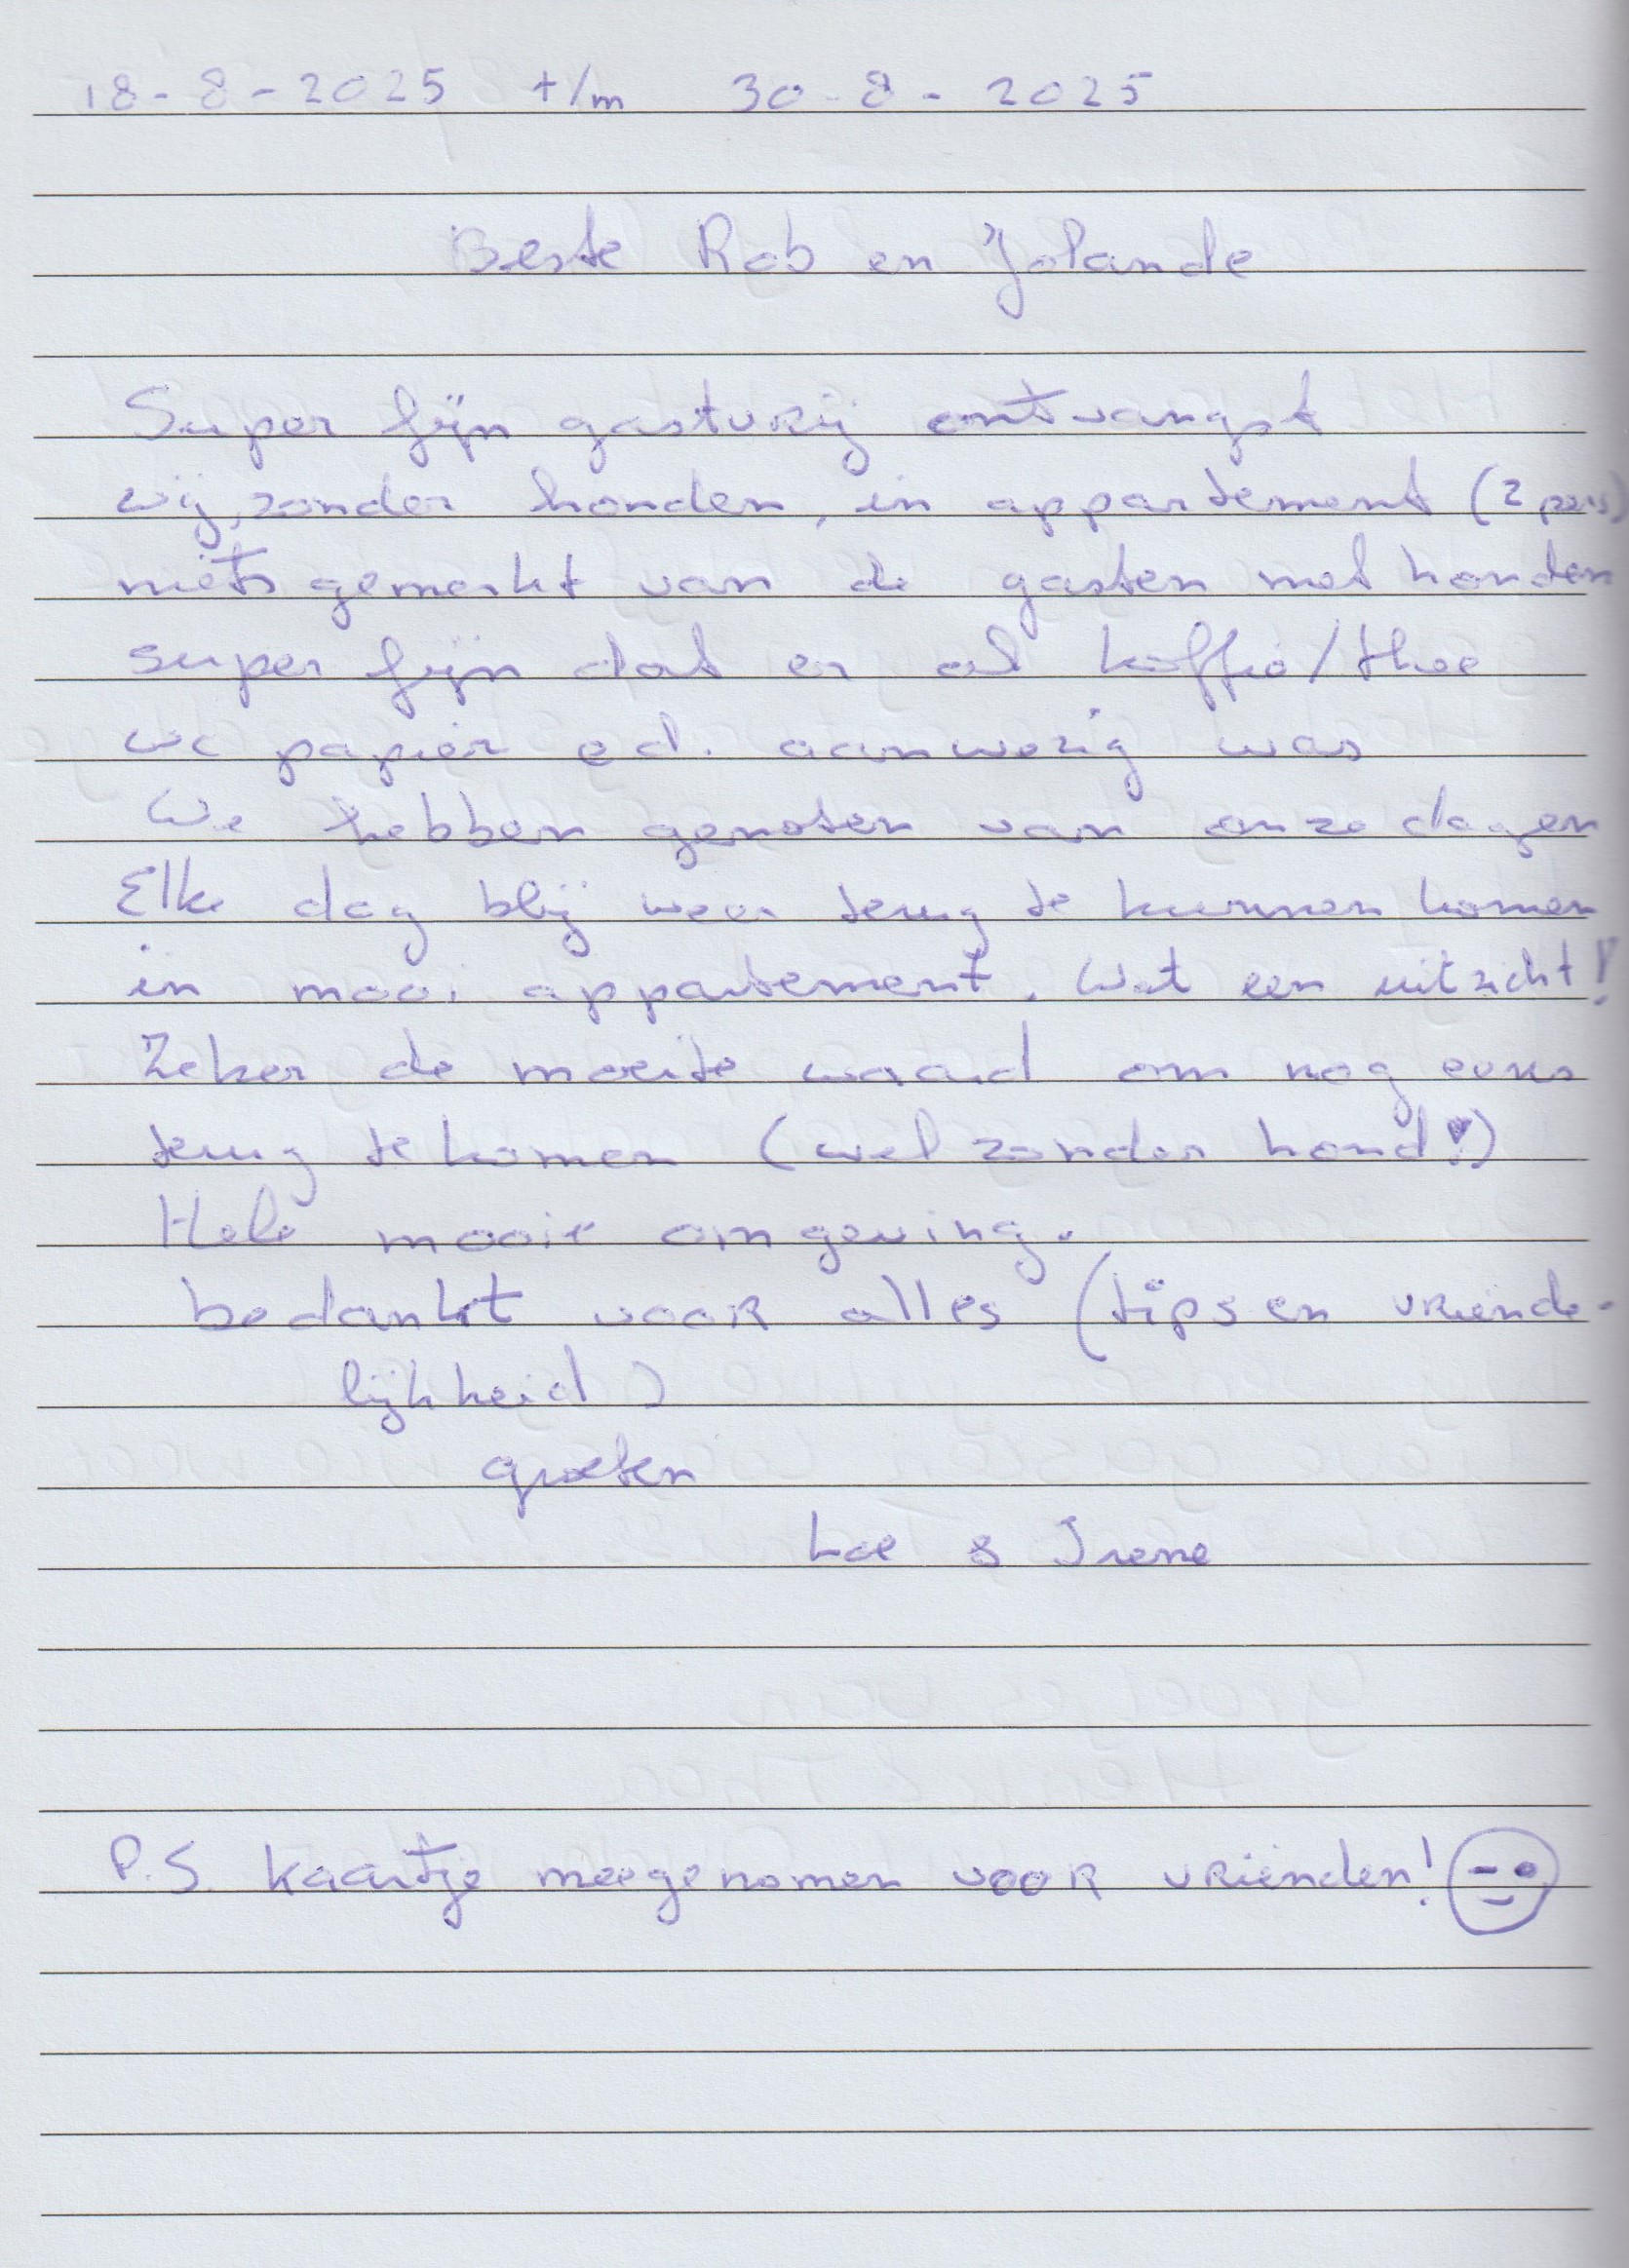 18-8-2025 t/m 30-8-2025
Beste Rob en Jolande
Super fijn gastvrij ontvangst
wij, zonder honden, in appartement (2 pers)
niets gemerkt van de gasten met honden
super fijn dat er al koffie/thee
wc papier e.d. aanwezig was
We hebben genoten van onze dagen
Elke dag blij weer terug te kunnen komen
in mooi appartement. Wat een uitzicht!
Zeker de moeite waard om nog eens
terug te komen (wel zonder hond!)
Hele mooie omgeving.
bedankt voor alles (tips en vriende-
lijkheid)
groeten
Loe & Irene
P.S. kaartje meegenomen voor vrienden!